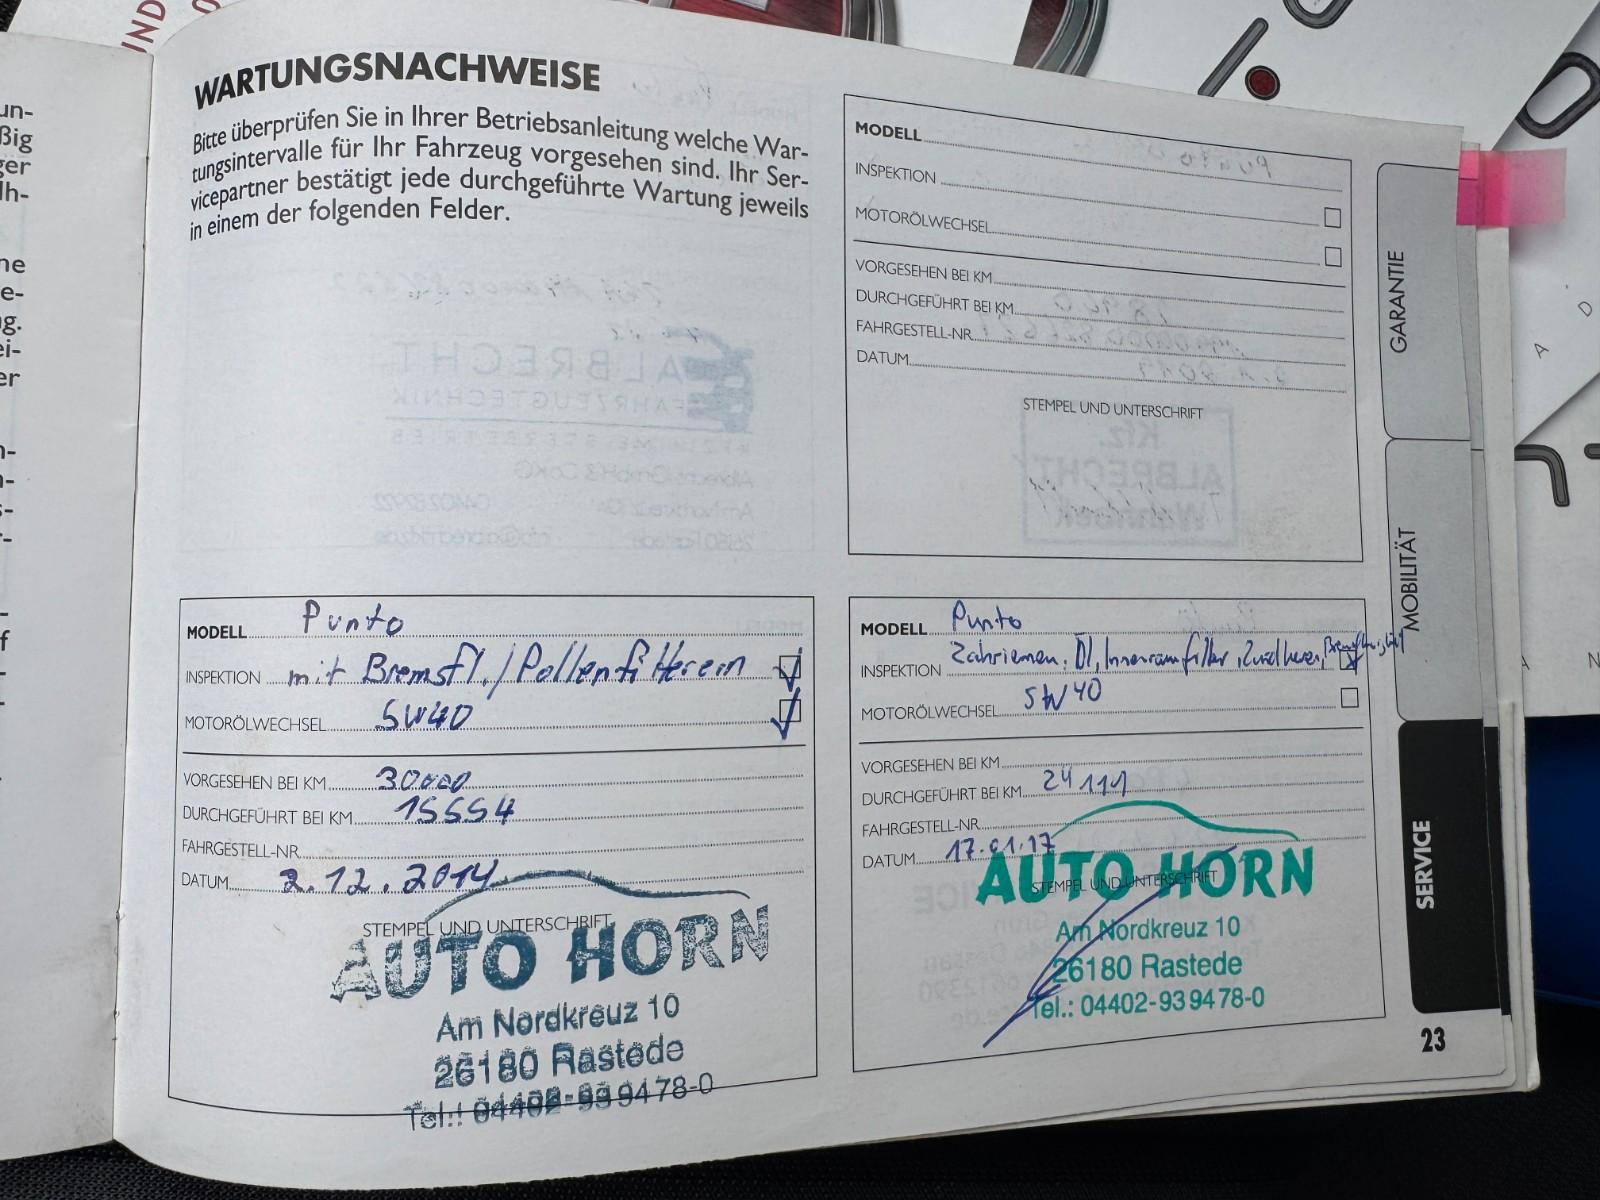 WARTUNGSNACHWEISE
Bitte überprüfen Sie in Ihrer Betriebsanleitung welche War-
tungsintervalle für Ihr Fahrzeug vorgesehen sind. Ihr Ser-
vicepartner bestätigt jede durchgeführte Wartung jeweils
in einem der folgenden Felder.
MODELL
INSPEKTION
MOTORÖLWECHSEL
VORGESEHEN BEI KM
DURCHGEFÜHRT BEI KM
FAHRGESTELL-NR.
DATUM
STEMPEL UND UNTERSCHRIFT
MODELL Punto
INSPEKTION mit Bremsfl./Pollenfilterein
MOTORÖLWECHSEL 5W40
VORGESEHEN BEI KM 30000
DURCHGEFÜHRT BEI KM 15554
FAHRGESTELL-NR.
DATUM 2.12.2014
STEMPEL UND UNTERSCHRIFT
AUTO HORN
Am Nordkreuz 10
26180 Rastede
Tel.: 04402-939478-0
MODELL Punto
INSPEKTION Zahriemen, Öl, Innenraumfilter,
MOTORÖLWECHSEL 5W40
VORGESEHEN BEI KM
DURCHGEFÜHRT BEI KM 24111
FAHRGESTELL-NR.
DATUM 17.01.17
AUTO HORN
STEMPEL UND UNTERSCHRIFT
Am Nordkreuz 10
26180 Rastede
Tel.: 04402-939478-0
GARANTIE
MOBILITÄT
SERVICE
23
un-
ßig
ger
lh-
ne
e-
g.
ei-
er
UND